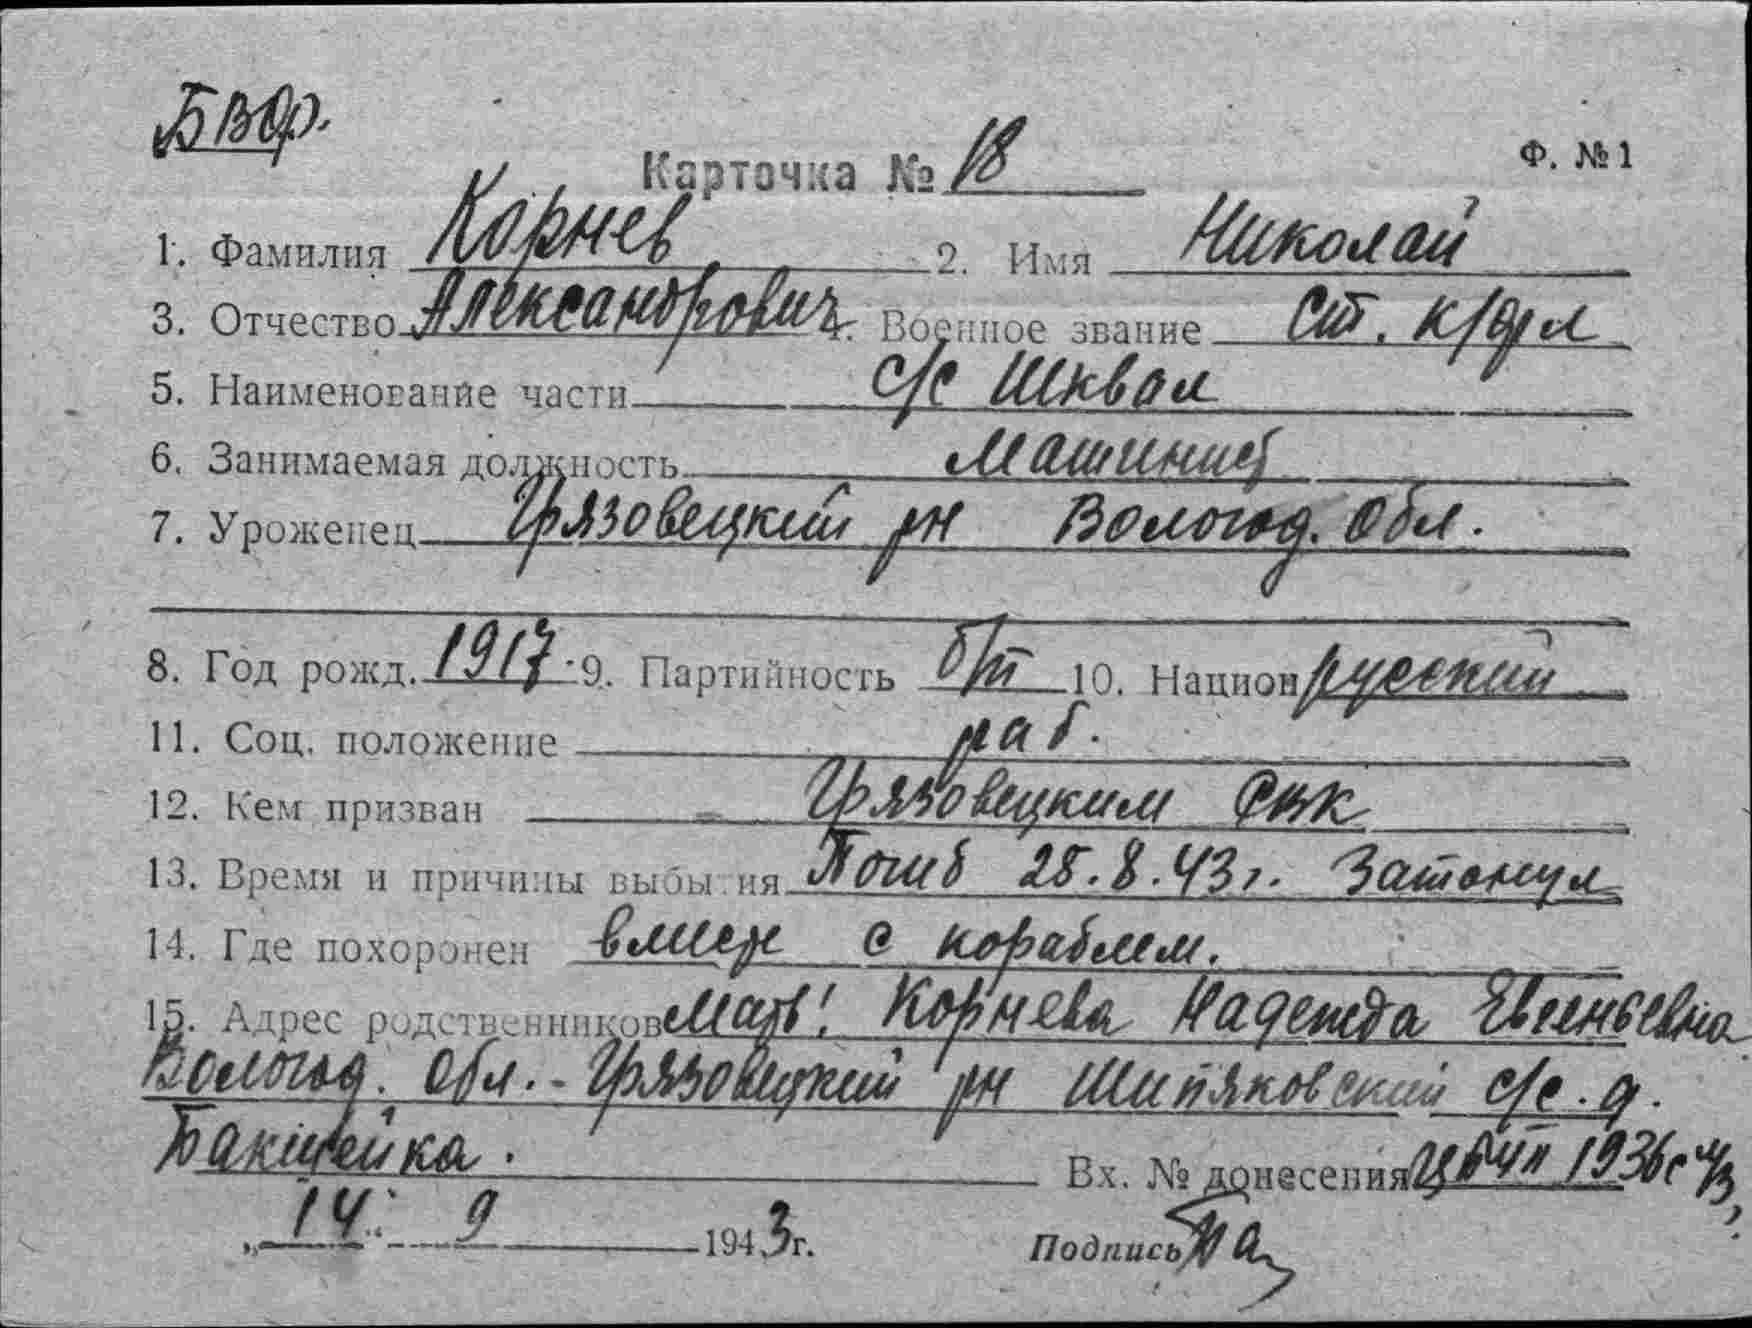 БВФл.
Карточка № 18
Ф. № 1
1. Фамилия Корнев 2. Имя Николай
3. Отчество Александрович 4. Военное звание Ст. к/фл
5. Наименование части с/с Шквал
6. Занимаемая должность Машинист
7. Уроженец Грязовецкий рн Вологод. Обл.
8. Год рожд. 1917 9. Партийность б/п 10. Национ русский
11. Соц. положение раб.
12. Кем призван Грязовецким РВК
13. Время и причины выбытия Погиб 28.8.43г. Затонул
14. Где похоронен вместе с кораблем.
15. Адрес родственников Мать: Корнева Надежда Евгеньевна
Вологод. Обл. - Грязовецкий рн Шипяковский с/с. д.
Вх. № донесения 1936с
„14" 9 1943г. Подпись